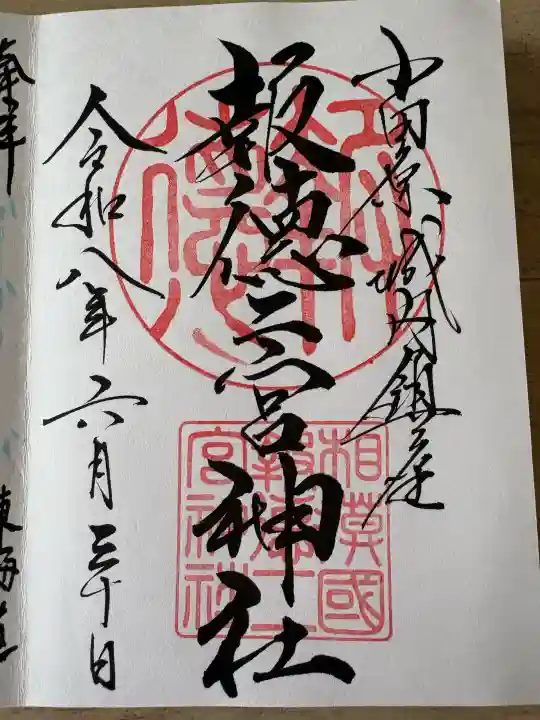 小田原城内鎮座
報徳二宮神社
令和八年六月三十日
相模國
報徳二
宮神社
奉拝